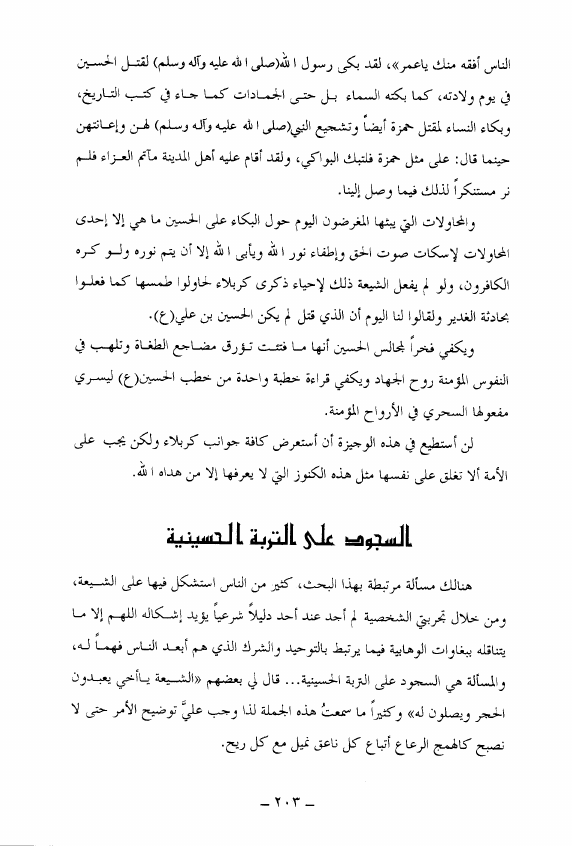 الناس أفقه منك ياعمر»، لقد بكى رسول الله(صلى الله عليه وآله وسلم) لقتـل الحسـين
في يوم ولادته، كما بكته السماء بـل حتـى الجمـادات كمـا جـاء في كتـب التـاريخ،
وبكاء النساء لمقتل حمزة أيضاً وتشجيع النبي(صلى الله عليـه وآلـه وسلم) لهـن وإعـانتهن
حينما قال: على مثل حمزة فلتبك البواكي، ولقد أقام عليه أهل المدينة مآتم العـزاء فلـم
نر مستنكراً لذلك فيما وصل إلينا.
والمحاولات التي يبثها المغرضون اليوم حول البكاء على الحسين ما هي إلا إحدى
المحاولات لإسكات صوت الحق وإطفاء نور الله ويأبى الله إلا أن يتم نوره ولـو كـره
الكافرون، ولو لم يفعل الشيعة ذلك لإحياء ذكرى كربلاء لحاولوا طمسها كما فعلـوا
بحادثة الغدير ولقالوا لنا اليوم أن الذي قتل لم يكن الحسين بن علي(ع).
ويكفي فخـراً لمجالس الحسين أنها مـا فتئـت تـؤرق مضـاجع الطغـاة وتلهـب في
النفوس المؤمنة روح الجهاد ويكفي قراءة خطبة واحدة من خطب الحسين(ع) ليسري
مفعولها السحري في الأرواح المؤمنة.
لن أستطيع في هذه الوجيزة أن أستعرض كافة جوانب كربلاء ولكن يجب على
الأمة ألا تغلق على نفسها مثل هذه الكنوز التي لا يعرفها إلا من هداه الله.
السجود على التربة الحسينية
هنالك مسألة مرتبطة بهذا البحث، كثير من الناس استشكل فيها على الشـيعة،
ومن خلال تجربتي الشخصية لم أجد عند أحد دليلاً شرعياً يؤيد إشكاله اللهم إلا مـا
يتناقله ببغاوات الوهابية فيما يرتبط بالتوحيد والشرك الذي هم أبعـد النـاس فهمـاً لـه،
والمسألة هي السجود على التربة الحسينية... قال لي بعضهم «الشيعة يـاأخي يعبـدون
الحجر ويصلون له» وكثيراً ما سمعتُ هذه الجملة لذا وجب عليَّ توضيح الأمر حتى لا
نصبح كالهمج الرعاع أتباع كل ناعق نميل مع كل ريح.
– ٢٠٣ –